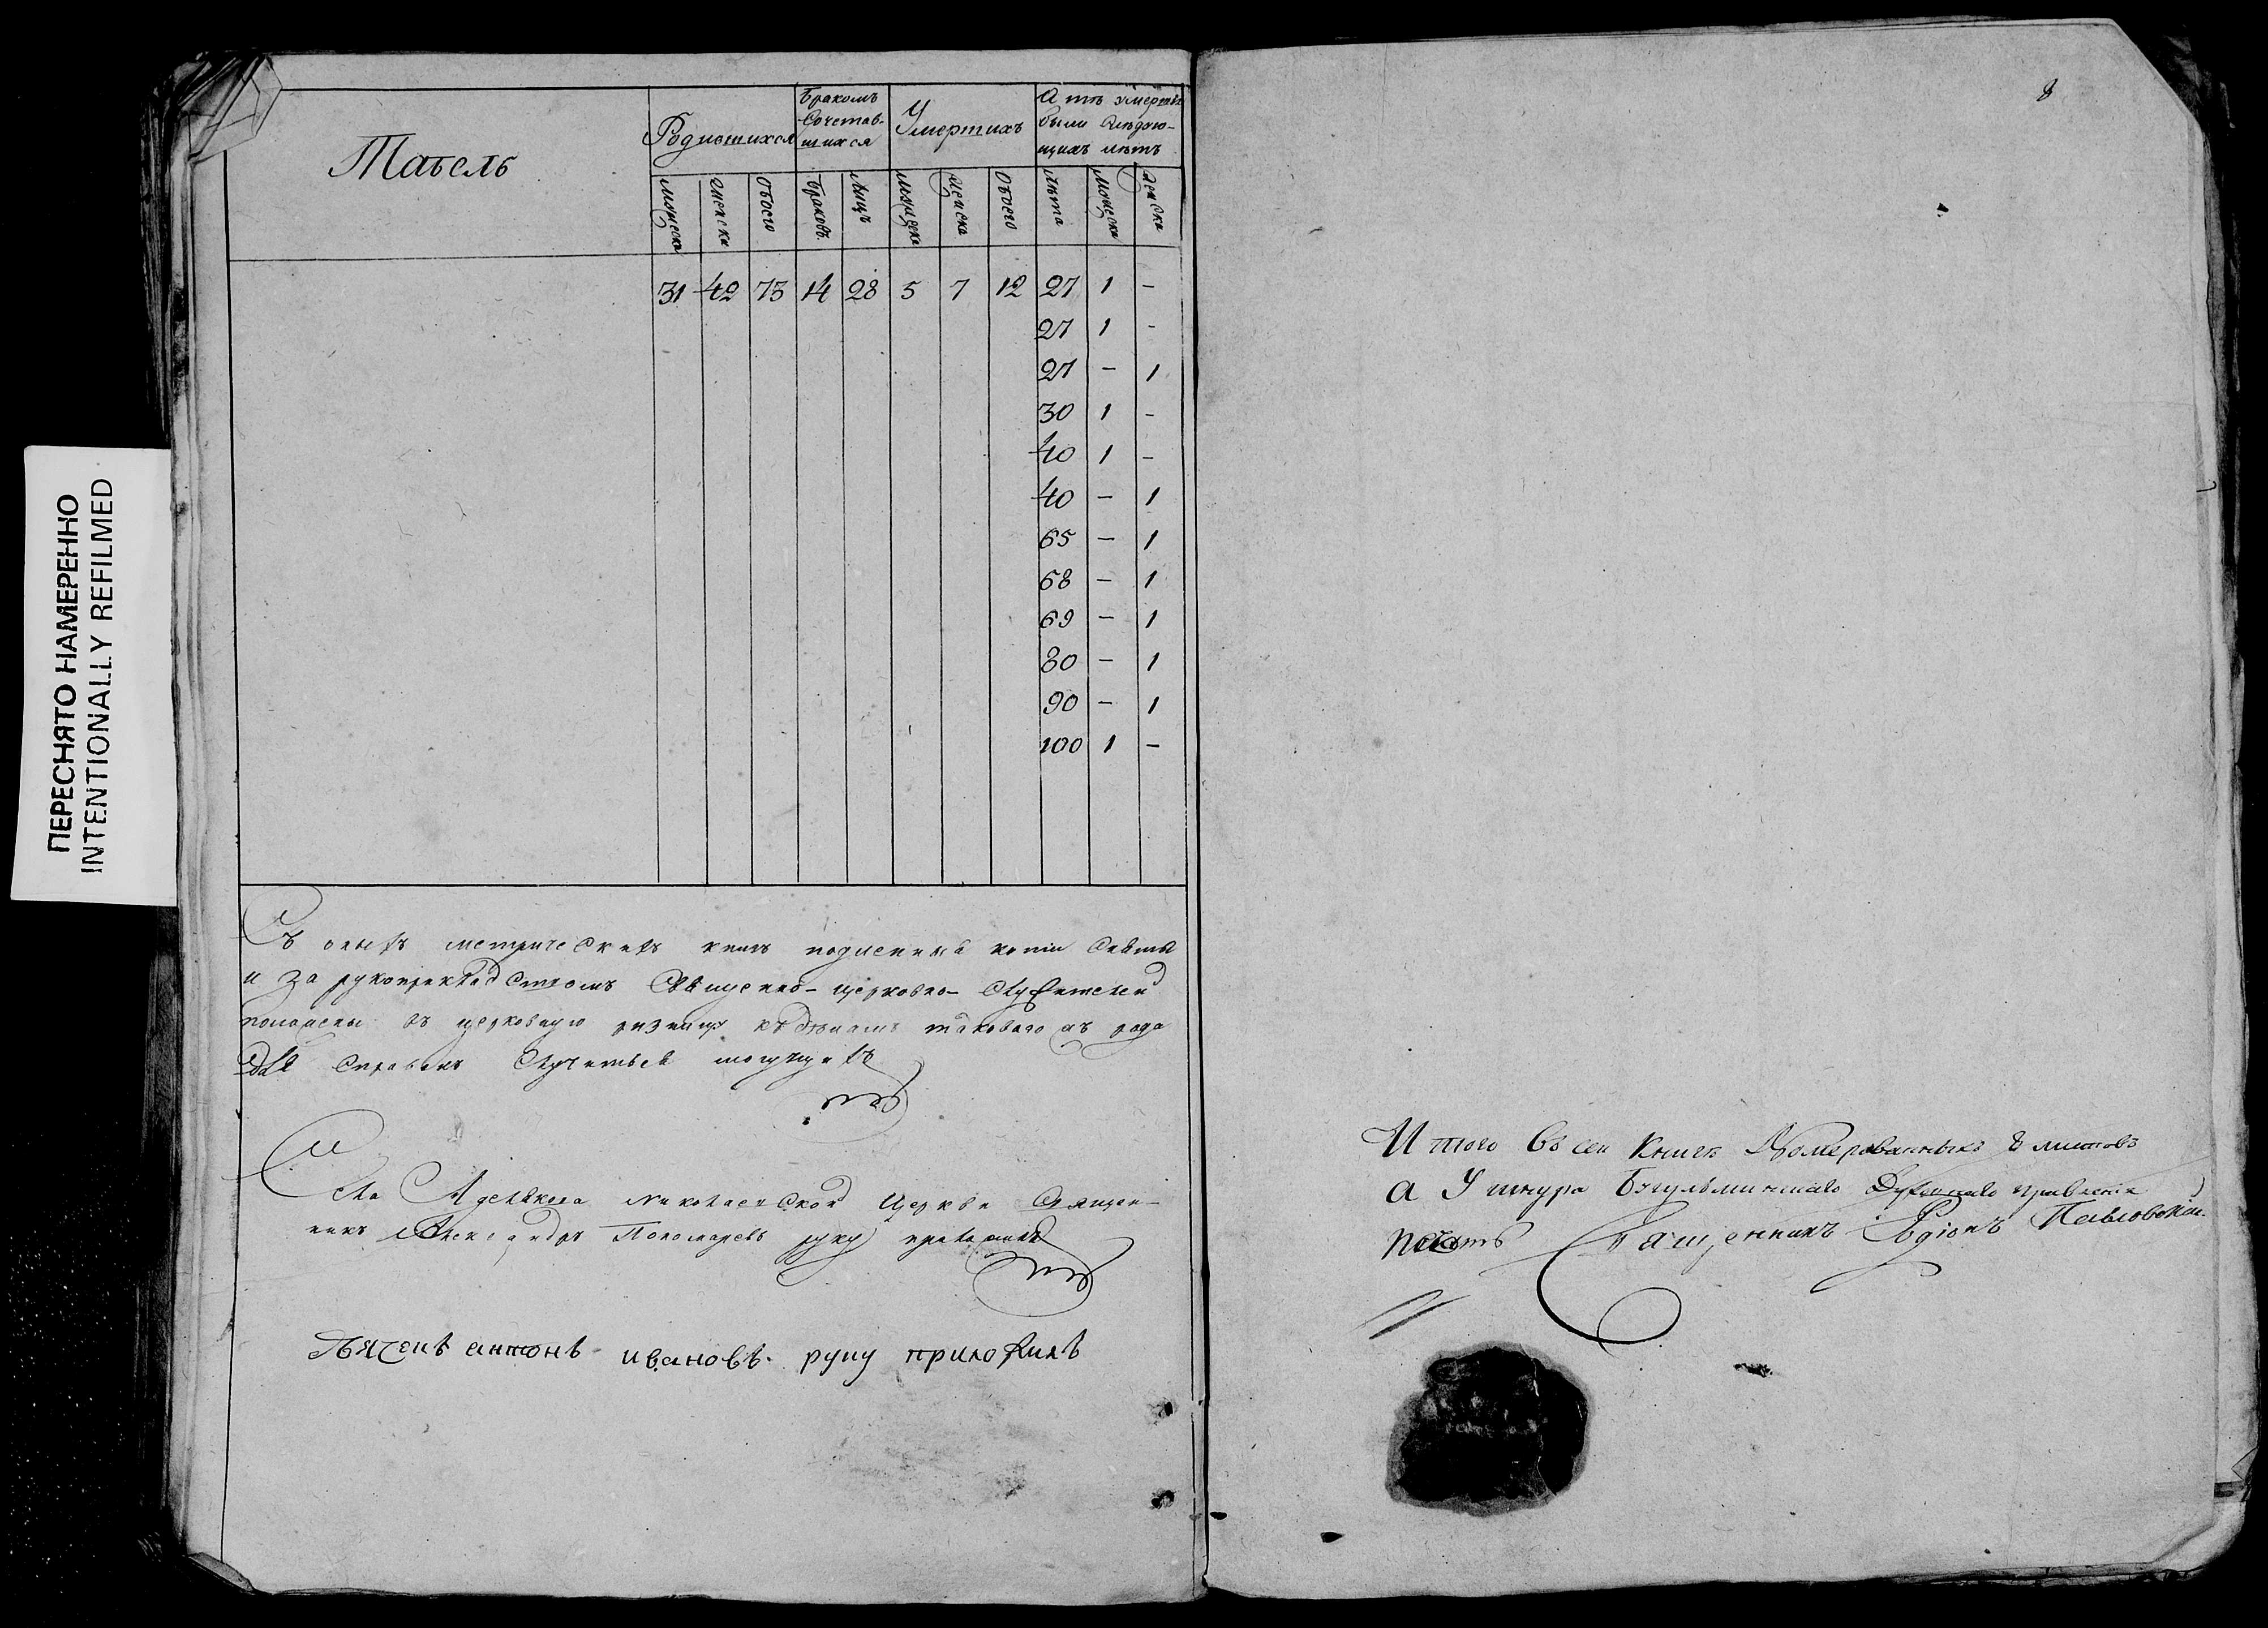 ПЕРЕСНЯТО НАМЕРЕННО
INTENTIONALLY REFILMED
Табель
Родившихся
Бракомъ
Сочетав-
шихся
Умершихъ
А тѣ умершіе
были слѣдую-
щихъ лѣтъ
Мужеска Женска Обоего Браковъ Лицъ Мужеска Женска Обоего Лѣта Мужеска Женска
31 42 75 14 28 5 7 12 27 1 -
27 1 -
27 - 1
30 1 -
40 1 -
40 - 1
65 - 1
68 - 1
69 - 1
80 - 1
90 - 1
100 1 -
Съ оныхъ метрическихъ книгъ подленныя копіи сняты
и за рукоприкладствомъ Священно-церковно-служителей
положены въ церковную ризницу къ дѣламъ таковаго жъ рода
для справокъ случиться могущихъ
Села Николаевской Церкви Священ-
никъ Александръ Пономаревъ руку приложилъ
Дьячекъ антонъ ивановъ руку приложилъ
8
Итого въ сей Книгѣ Номерованныхъ 8 листовъ
а У шнура Бугульминскаго Духовнаго правленія
печать Священникъ Родіонъ Павловскій